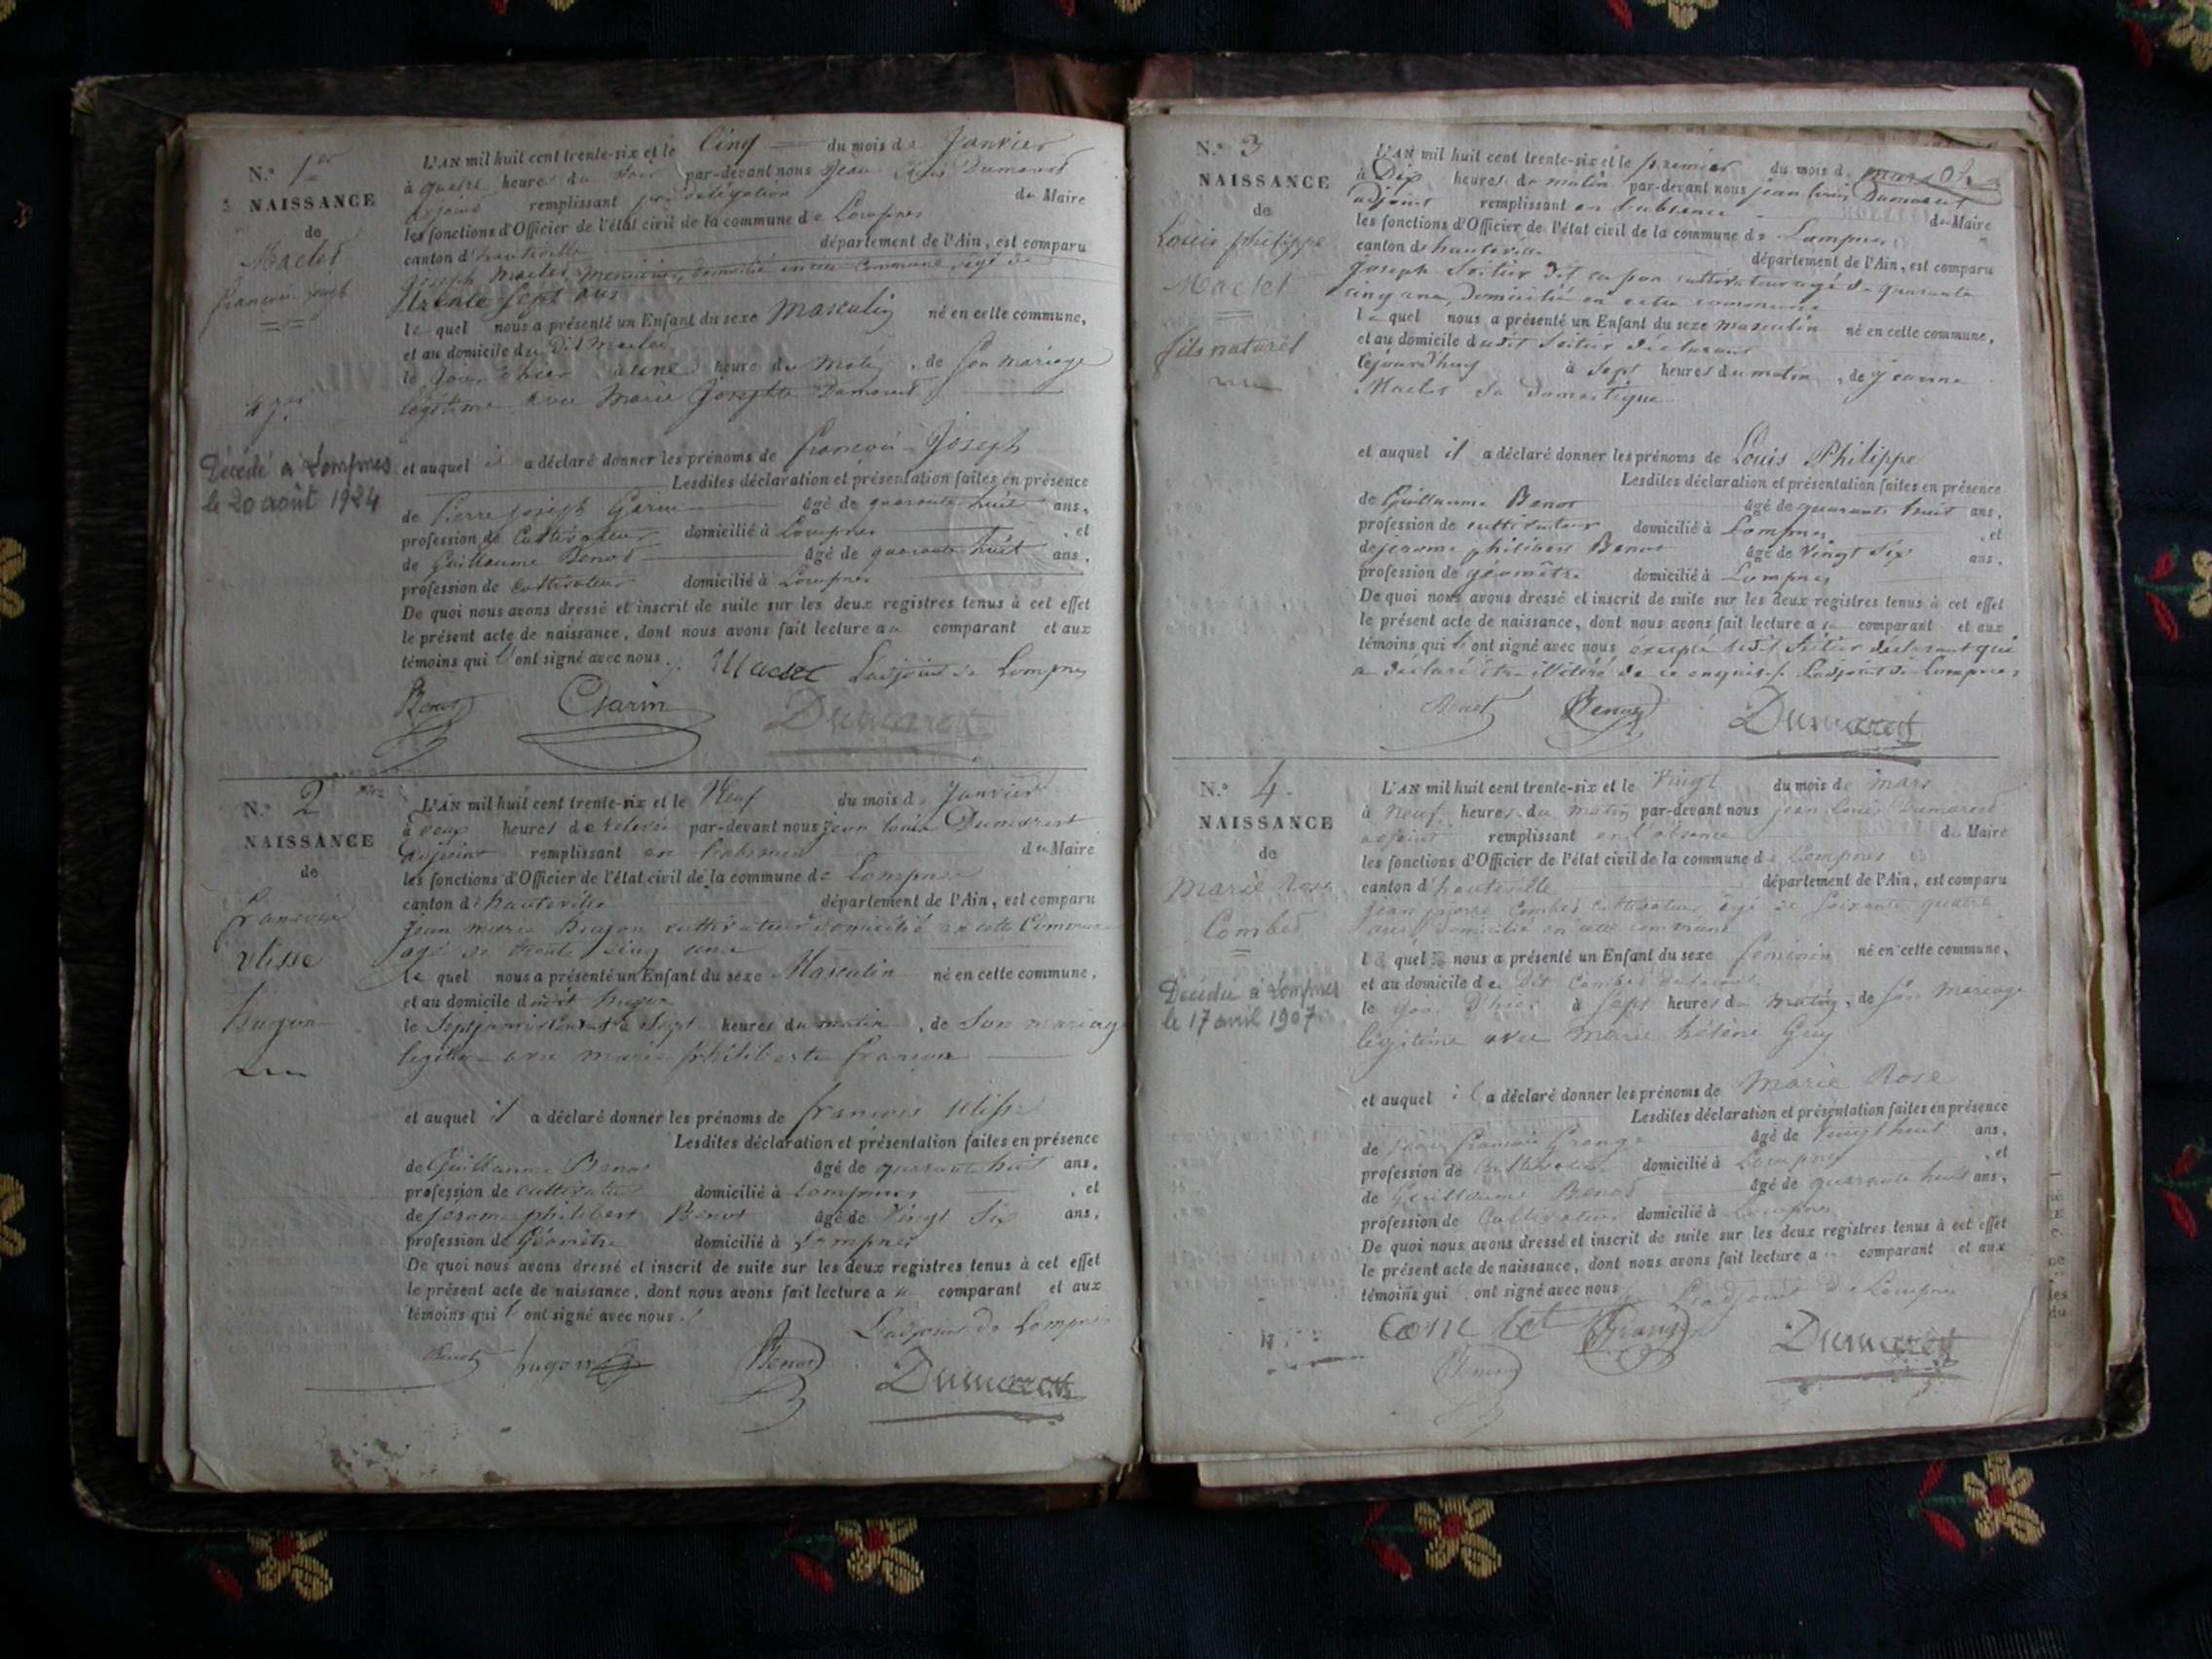 N.° 1er
NAISSANCE
de
Maclet
françois joseph
Décédé à Lompnes
le 20 août 1924
L'AN mil huit cent trente-six et le Cinq du mois de Janvier
à quatre heures du soir par-devant nous Jean Louis Dumarest
adjoint remplissant par délégation du Maire
les fonctions d'Officier de l'état civil de la commune de Lompnes
canton d'hauteville département de l'Ain, est comparu
joseph Maclet, menuisier, domicilié en cette Commune, âgé de
trente Sept ans
le quel nous a présenté un Enfant du sexe Masculin né en cette commune,
et au domicile du Dit Maclet
le jour d'hier à une heure du Matin, de Son mariage
légitime avec Marie Josephte Dumarest
et auquel il a déclaré donner les prénoms de françois Joseph
Lesdites déclaration et présentation faites en présence
de Pierre joseph Garin âgé de quarante huit ans,
profession de Cultivateur domicilié à Lompnes, et
de Guillaume Benot âgé de quarante huit ans,
profession de cultivateur domicilié à Lompnes
De quoi nous avons dressé et inscrit de suite sur les deux registres tenus à cet effet
le présent acte de naissance, dont nous avons fait lecture au comparant et aux
témoins qui l'ont signé avec nous. Maclet Ladjoint de Lompnes
Benot Garin Dumarest
N.° 2
NAISSANCE
de
francois
Ulisse
hugon
L'AN mil huit cent trente-six et le Neuf du mois de Janvier
à deux heures de relevée par-devant nous jean louis Dumarest
adjoint remplissant en l'absence du Maire
les fonctions d'Officier de l'état civil de la commune de Lompnes
canton de hauteville département de l'Ain, est comparu
jean marie hugon cultivateur domicilié en cette Commune
agé de trente cinq ans
le quel nous a présenté un Enfant du sexe Masculin né en cette commune,
et au domicile dudit hugon
le Sept janvier courant à Sept heures du matin, de Son mariage
legitime avec marie philiberte francon
et auquel il a déclaré donner les prénoms de francois Ulisse
Lesdites déclaration et présentation faites en présence
de Guillaume Benot âgé de quarante huit ans,
profession de cultivateur domicilié à Lompnes, et
de jerome philibert Benot âgé de Vingt Six ans,
profession de Géomètre domicilié à Lompnes
De quoi nous avons dressé et inscrit de suite sur les deux registres tenus à cet effet
le présent acte de naissance, dont nous avons fait lecture au comparant et aux
témoins qui l'ont signé avec nous.
Ladjoint de Lompnes
Benot hugon Benot Dumarest
N.° 3
NAISSANCE
de
Louis philippe
Maclet
fils naturel
L'AN mil huit cent trente-six et le premier du mois de mars
à Dix heures du matin par-devant nous jean louis Dumarest
adjoint remplissant en l'absence du Maire
les fonctions d'Officier de l'état civil de la commune de Lompnes
canton de hauteville département de l'Ain, est comparu
joseph cultivateur agé de quarante
cinq ans, Domicilié en cette commune
le quel nous a présenté un Enfant du sexe masculin né en cette commune,
et au domicile dudit déclarant
cejourd'huy à Sept heures du matin, de jeanne
Maclet Sa Domestique
et auquel il a déclaré donner les prénoms de Louis Philippe
Lesdites déclaration et présentation faites en présence
de Guillaume Benot âgé de quarante huit ans,
profession de cultivateur domicilié à Lompnes, et
de jerome philibert Benot âgé de Vingt Six ans,
profession de géomètre domicilié à Lompnes
De quoi nous avons dressé et inscrit de suite sur les deux registres tenus à cet effet
le présent acte de naissance, dont nous avons fait lecture au comparant et aux
témoins qui l'ont signé avec nous excepté ledit déclarant qui
a déclaré être illétéré de ce enquis. Ladjoint de Lompnes
Benot Benot Dumarest
N.° 4
NAISSANCE
de
Marie Rose
Combet
Décédée à Lompnes
le 17 avril 1907
L'AN mil huit cent trente-six et le Vingt du mois de Mars
à Neuf heures du Matin par-devant nous jean Louis Dumarest
adjoint remplissant en l'absence du Maire
les fonctions d'Officier de l'état civil de la commune de Lompnes
canton d'hauteville département de l'Ain, est comparu
jean pierre Combet cultivateur agé de Soixante quatre
ans, domicilié en cette commune
le quel nous a présenté un Enfant du sexe féminin né en cette commune,
et au domicile du Dit Combet
le jour D'hier à Sept heures du Matin, de Son Mariage
légitime avec Marie hélène Guy
et auquel il a déclaré donner les prénoms de Marie Rose
Lesdites déclaration et présentation faites en présence
de jean francois Grange âgé de Vingt huit ans,
profession de Cultivateur domicilié à Lompnes, et
de Guillaume Benot âgé de quarante huit ans,
profession de Cultivateur domicilié à Lompnes
De quoi nous avons dressé et inscrit de suite sur les deux registres tenus à cet effet
le présent acte de naissance, dont nous avons fait lecture au comparant et aux
témoins qui ont signé avec nous Ladjoint de Lompnes
Combet Grange Dumarest
Benot